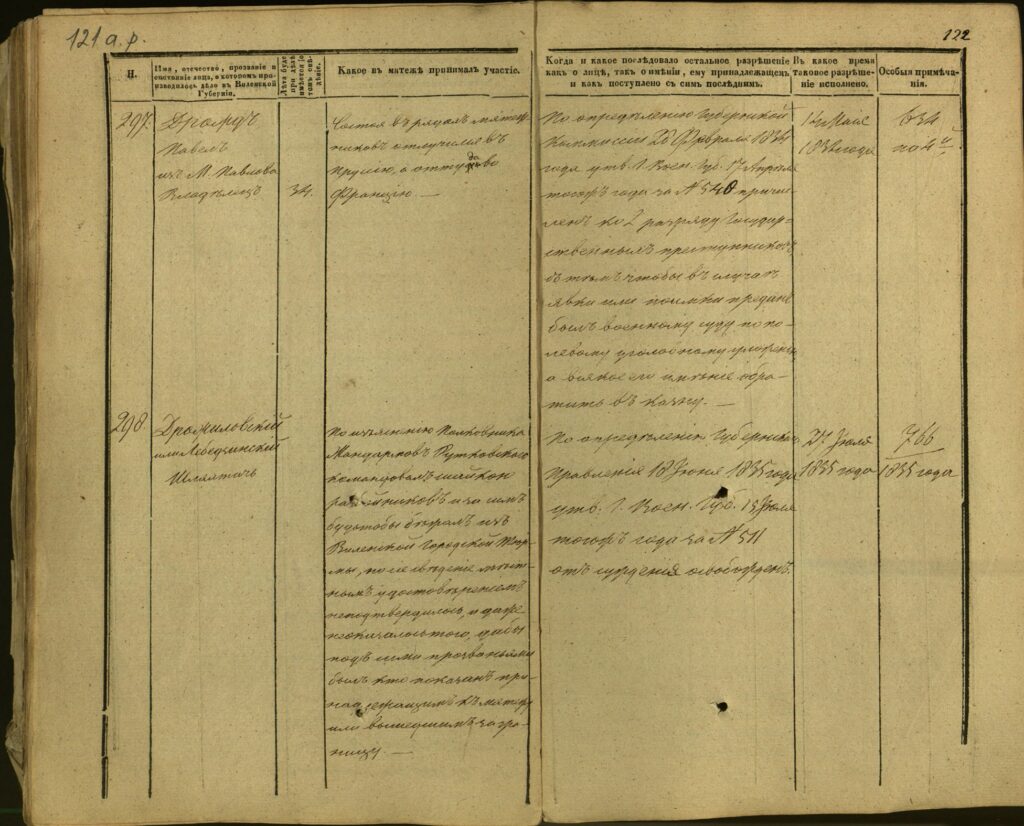 121 а.р.
122
Н.
Имя, отечество, прозваніе и
состояніе лица, о которомъ про-
изводилось дѣло въ Виленской
Губерніи.
Лѣта буде
при дѣлѣ
имѣется о
томъ свѣ-
дѣніе.
Какое въ матежѣ принималъ участіе.
Когда и какое послѣдовало остальное разрѣшеніе
какъ о лицѣ, такъ о имѣніи, ему принадлежащемъ
и какъ поступлено съ симъ послѣднимъ.
Въ какое время
таковое разрѣше-
ніе исполнено.
Особыя примѣча-
нія.
297.
Павелъ
изъ М. Павлова
Владѣлецъ
34.
Состоя въ рядахъ мятеж-
никовъ отлучился въ
Прусію, а оттуда во
Францію. —
По опредѣленію Губернской
Коммисіи 28 Февраля 1834
года утв. Г. Воен. Губ. 17 Апрѣля
тогожъ года за № 540 причи-
сленъ ко 2 разряду Государ-
ственныхъ преступниковъ
съ тѣмъ чтобы въ случаѣ
явки или поимки преданъ
былъ военному суду по по-
левому уголовному уложенію
а всякое его имѣніе обра-
тить въ казну. —
14 Мая
1834 года
634
на 4й
298
Дромиловскій
или Лебедзинскій
Шляхтичъ
По изъясненію Полковника
Жандармовъ Рутковскаго
командовалъ шайкою
разбойниковъ и за симъ
будтобы бѣжалъ изъ
Виленской Городской Тюрь-
мы, но се свѣденіе
удостовѣреніемъ
неподтвердилось, и даже
неоказалось того, дабы
подъ сими прозваніями
былъ кто показанъ при-
надлежащимъ къ мятежу
или вышедшимъ загра-
ницу. —
По опредѣленію Губернскаго
Правленія 18 Іюня 1835 года
утв. Г. Воен. Губ. 13 Іюля
тогожъ года за № 511
отъ сужденія освобожденъ.
27 Іюля
1835 года
766
1835 года